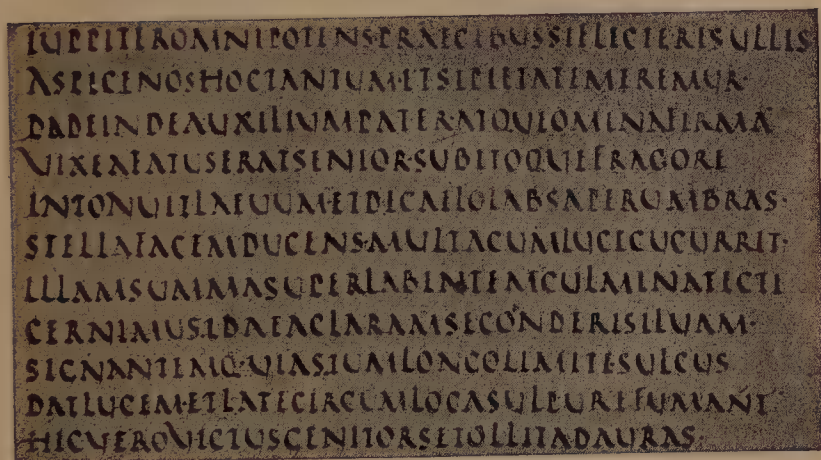 IUPPITEROMNIPOTENS·PRAECIBUSSIFLECTERISULLIS
ASPICENOSHOCTANTUM·ETSIPIETATEMEREMUR·
DADEINDEAUXILIUMPATERATQUEOMINAFIRMA
VIXEAFATUSERATSENIOR·SUBITOQUEFRAGORE
INTONUITLAEUUM·ETDECAELOLABSAPERUMBRAS·
STELLAFACEMDUCENS·MULTACUMLUCECUCURRIT·
ILLAMSUMMASUPERLABENTEMCULMINATECTI
CERNIMUS·IDAEACLARAMSECONDERESILUAM·
SIGNANTEMQ·UIAS·TUMLONGOLIMITESULCUS
DATLUCEM·ETLATECIRCUMLOCASULPUREFUMANT
HICUEROVICTUSGENITORSETOLLITADAURAS·